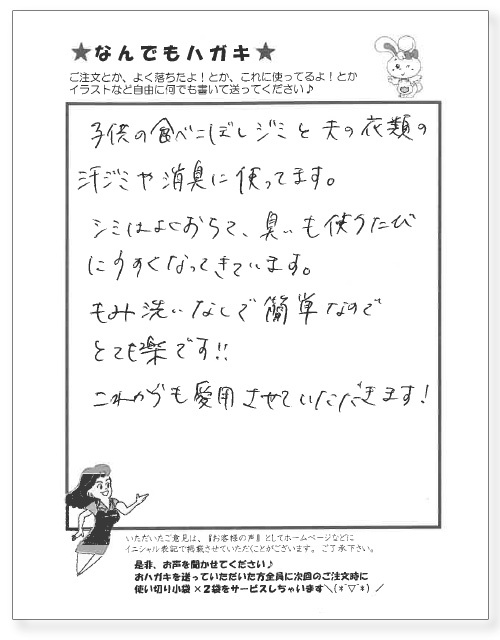 ★なんでもハガキ★
ご注文とか、よく落ちたよ！とか、これに使ってるよ！とか
イラストなど自由に何でも書いて送ってください♪
子供の食べこぼしジミと夫の衣類の
汗ジミや消臭に使ってます。
シミはよくおちて、臭いも使うたび
にうすくなってきています。
もみ洗いなしで簡単なので
とても楽です!!
これからも愛用させていただきます！
いただいたご意見は、『お客様の声』としてホームページなどに
イニシャル表記で掲載させていただくことがございます。ご了承下さい。
是非、お声を聞かせてください♪
おハガキを送っていただいた方全員に次回のご注文時に
使い切り小袋×２袋をサービスしちゃいます＼(*ˆ▽ˆ*)／